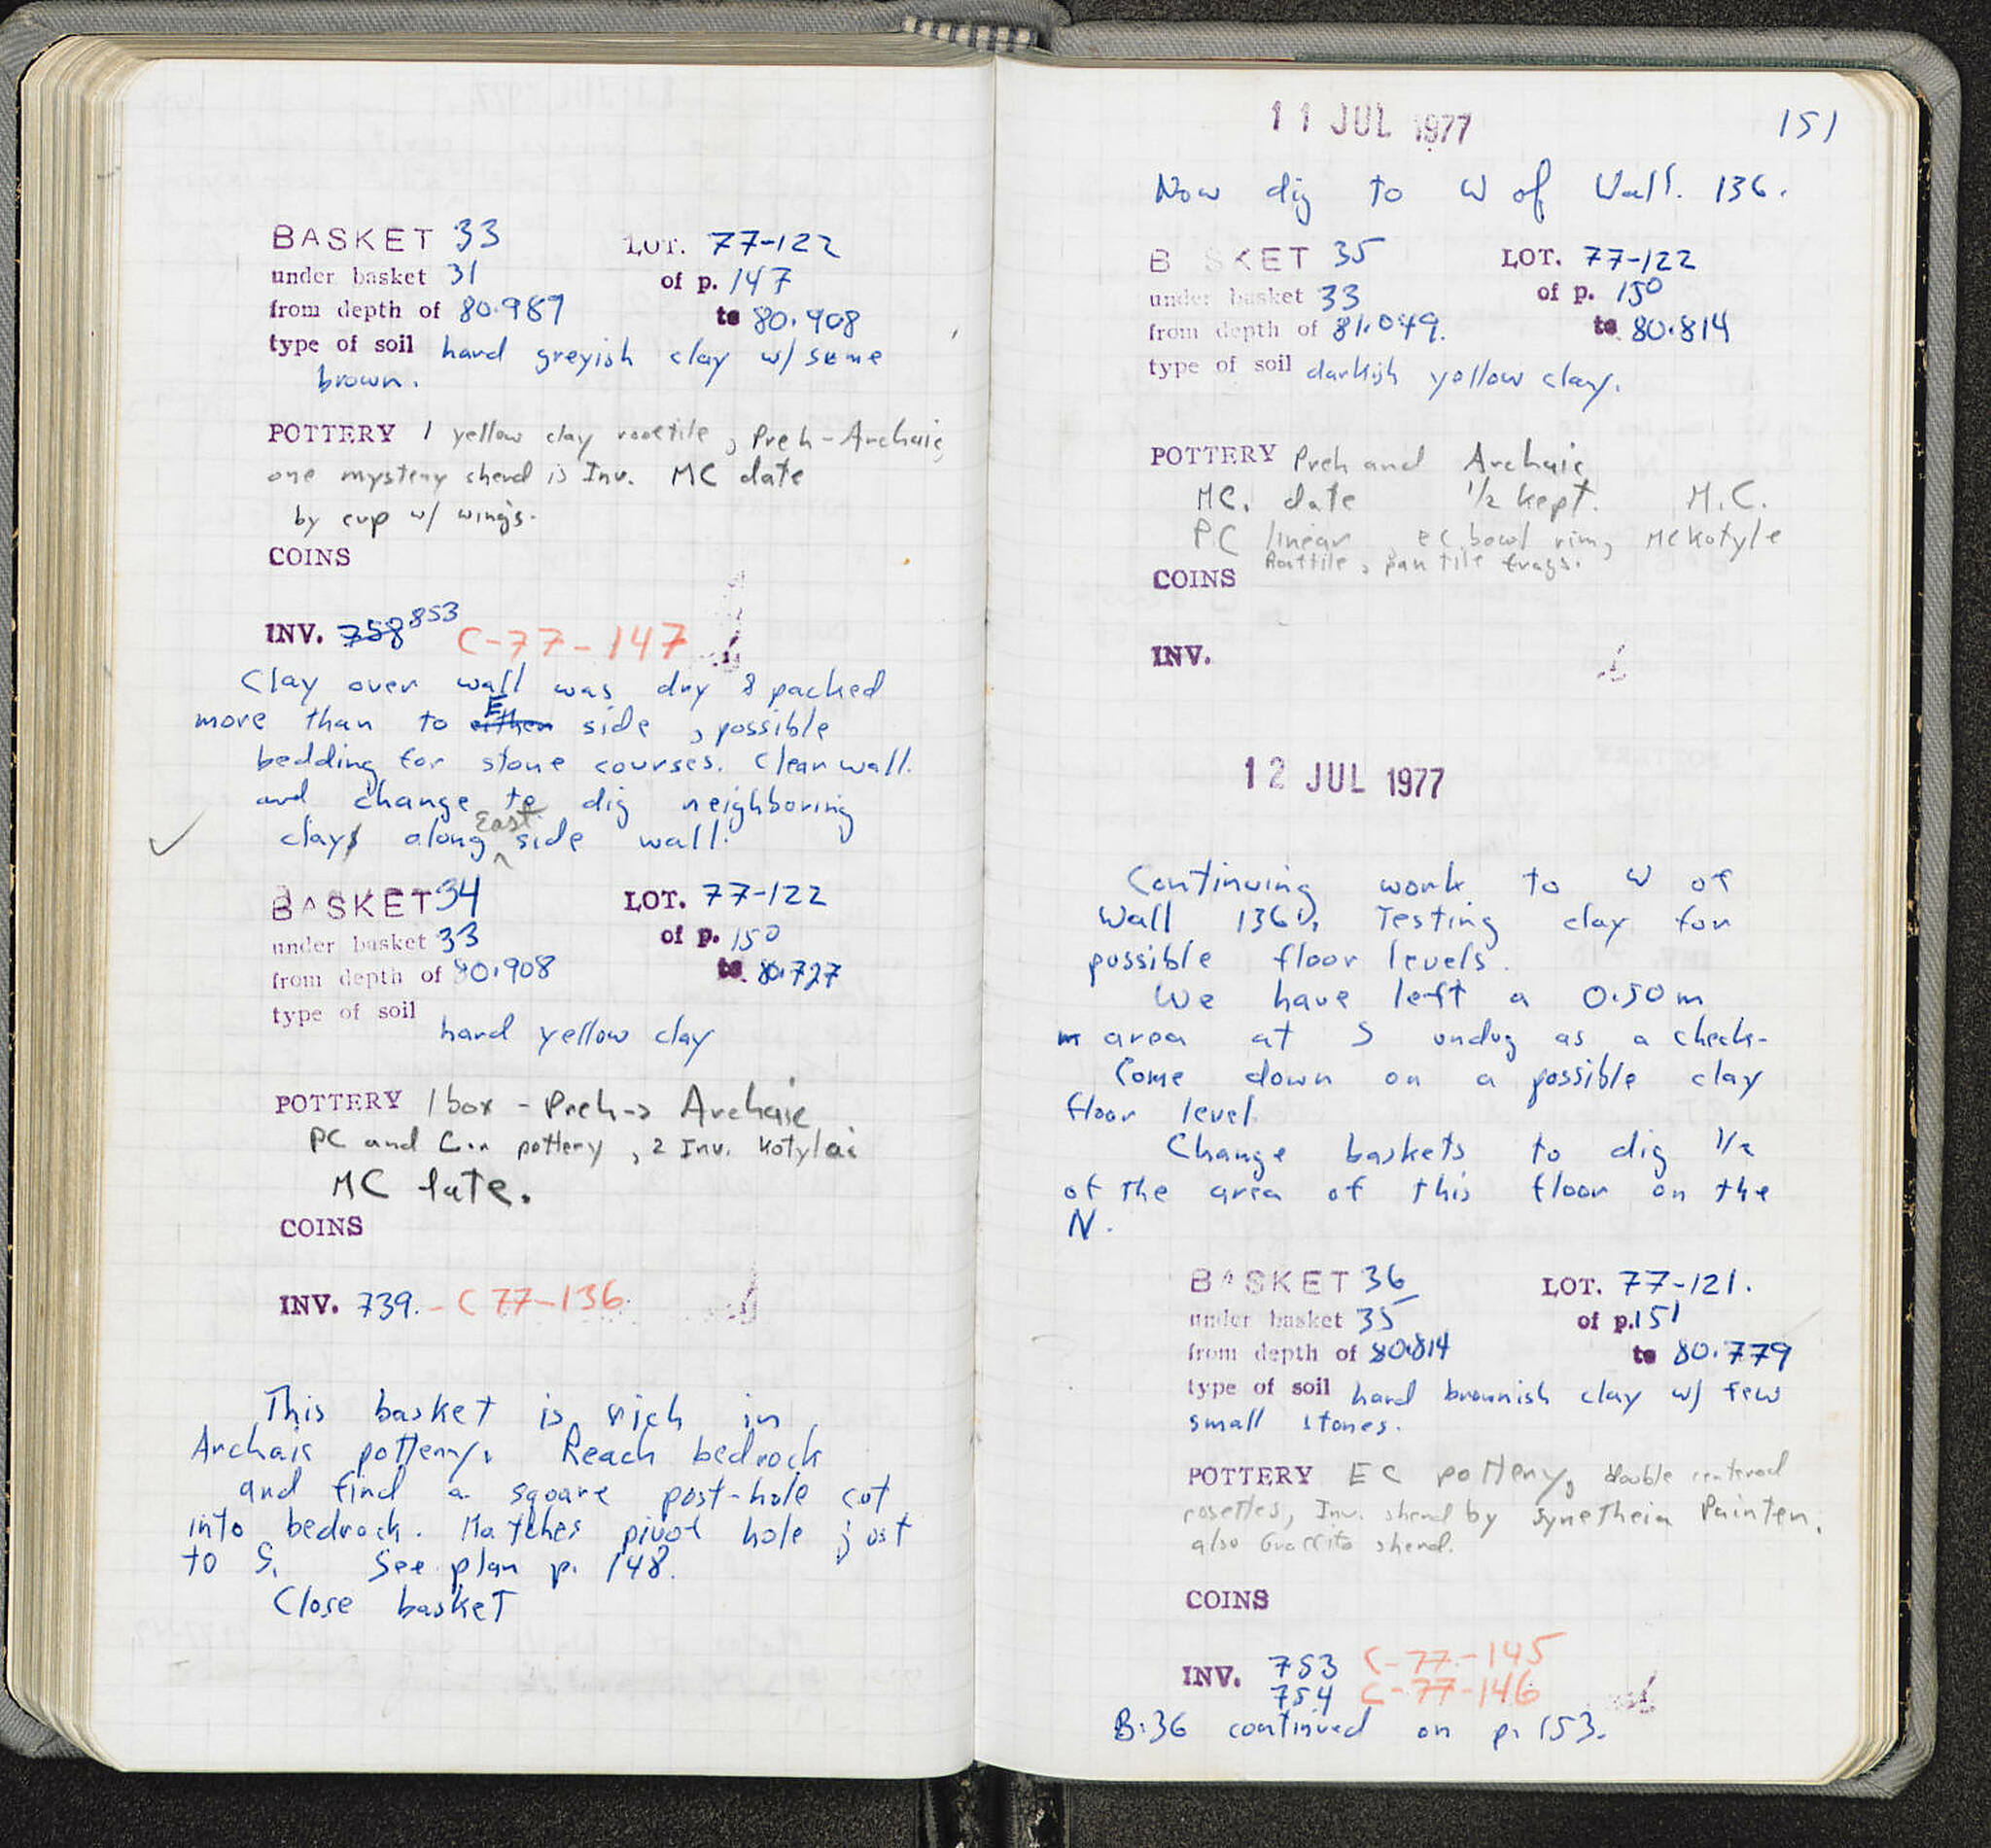 BASKET 33 LOT. 77-122
under basket 31 of p. 147
from depth of 80.987 to 80.908
type of soil hard greyish clay w/ some
brown.
POTTERY 1 yellow clay rooftile, Preh-Archaic,
one mystery sherd is Inv. MC date
by cup w/ wings.
COINS
INV. 758 853 C-77-147
Clay over wall was dry & packed
more than to either E side, possible
bedding for stone courses. Clean wall.
and change to dig neighboring
clay along East side wall.
BASKET 34 LOT. 77-122
under basket 33 of p. 150
from depth of 80.908 to 80.727
type of soil
hard yellow clay
POTTERY 1 box - Preh-> Archaic
PC and Cor pottery, 2 Inv. Kotylai
MC late.
COINS
INV. 739. - C 77-136
This basket is rich in
Archaic pottery. Reach bedrock
and find a square post-hole cut
into bedrock. Matches pivot hole just
to S. See plan p. 148.
Close basket
11 JUL 1977 151
Now dig to W of Wall. 136.
B SKET 35 LOT. 77-122
under basket 33 of p. 150
from depth of 81.049. to 80.814
type of soil darkish yellow clay.
POTTERY Preh and Archaic
MC. date 1/2 kept. M.C.
PC linear, EC bowl rim, MC kotyle
Rooftile, pan tile frags.
COINS
INV.
12 JUL 1977
Continuing work to W of
Wall 136. Testing clay for
possible floor levels.
We have left a 0.50 m
area at S undug as a check-
Come down on a possible clay
floor level.
Change baskets to dig 1/2
of the area of this floor on the
N.
BASKET 36 LOT. 77-121.
under basket 35 of p. 151
from depth of 80.814 to 80.779
type of soil hard brownish clay w/ few
small stones.
POTTERY EC pottery, double centered
rosettes, Inv. sherd by Synetheia Painter,
also Graffito sherd.
COINS
INV. 753 C-77-145
754 C-77-146
B.36 continued on p. 153.